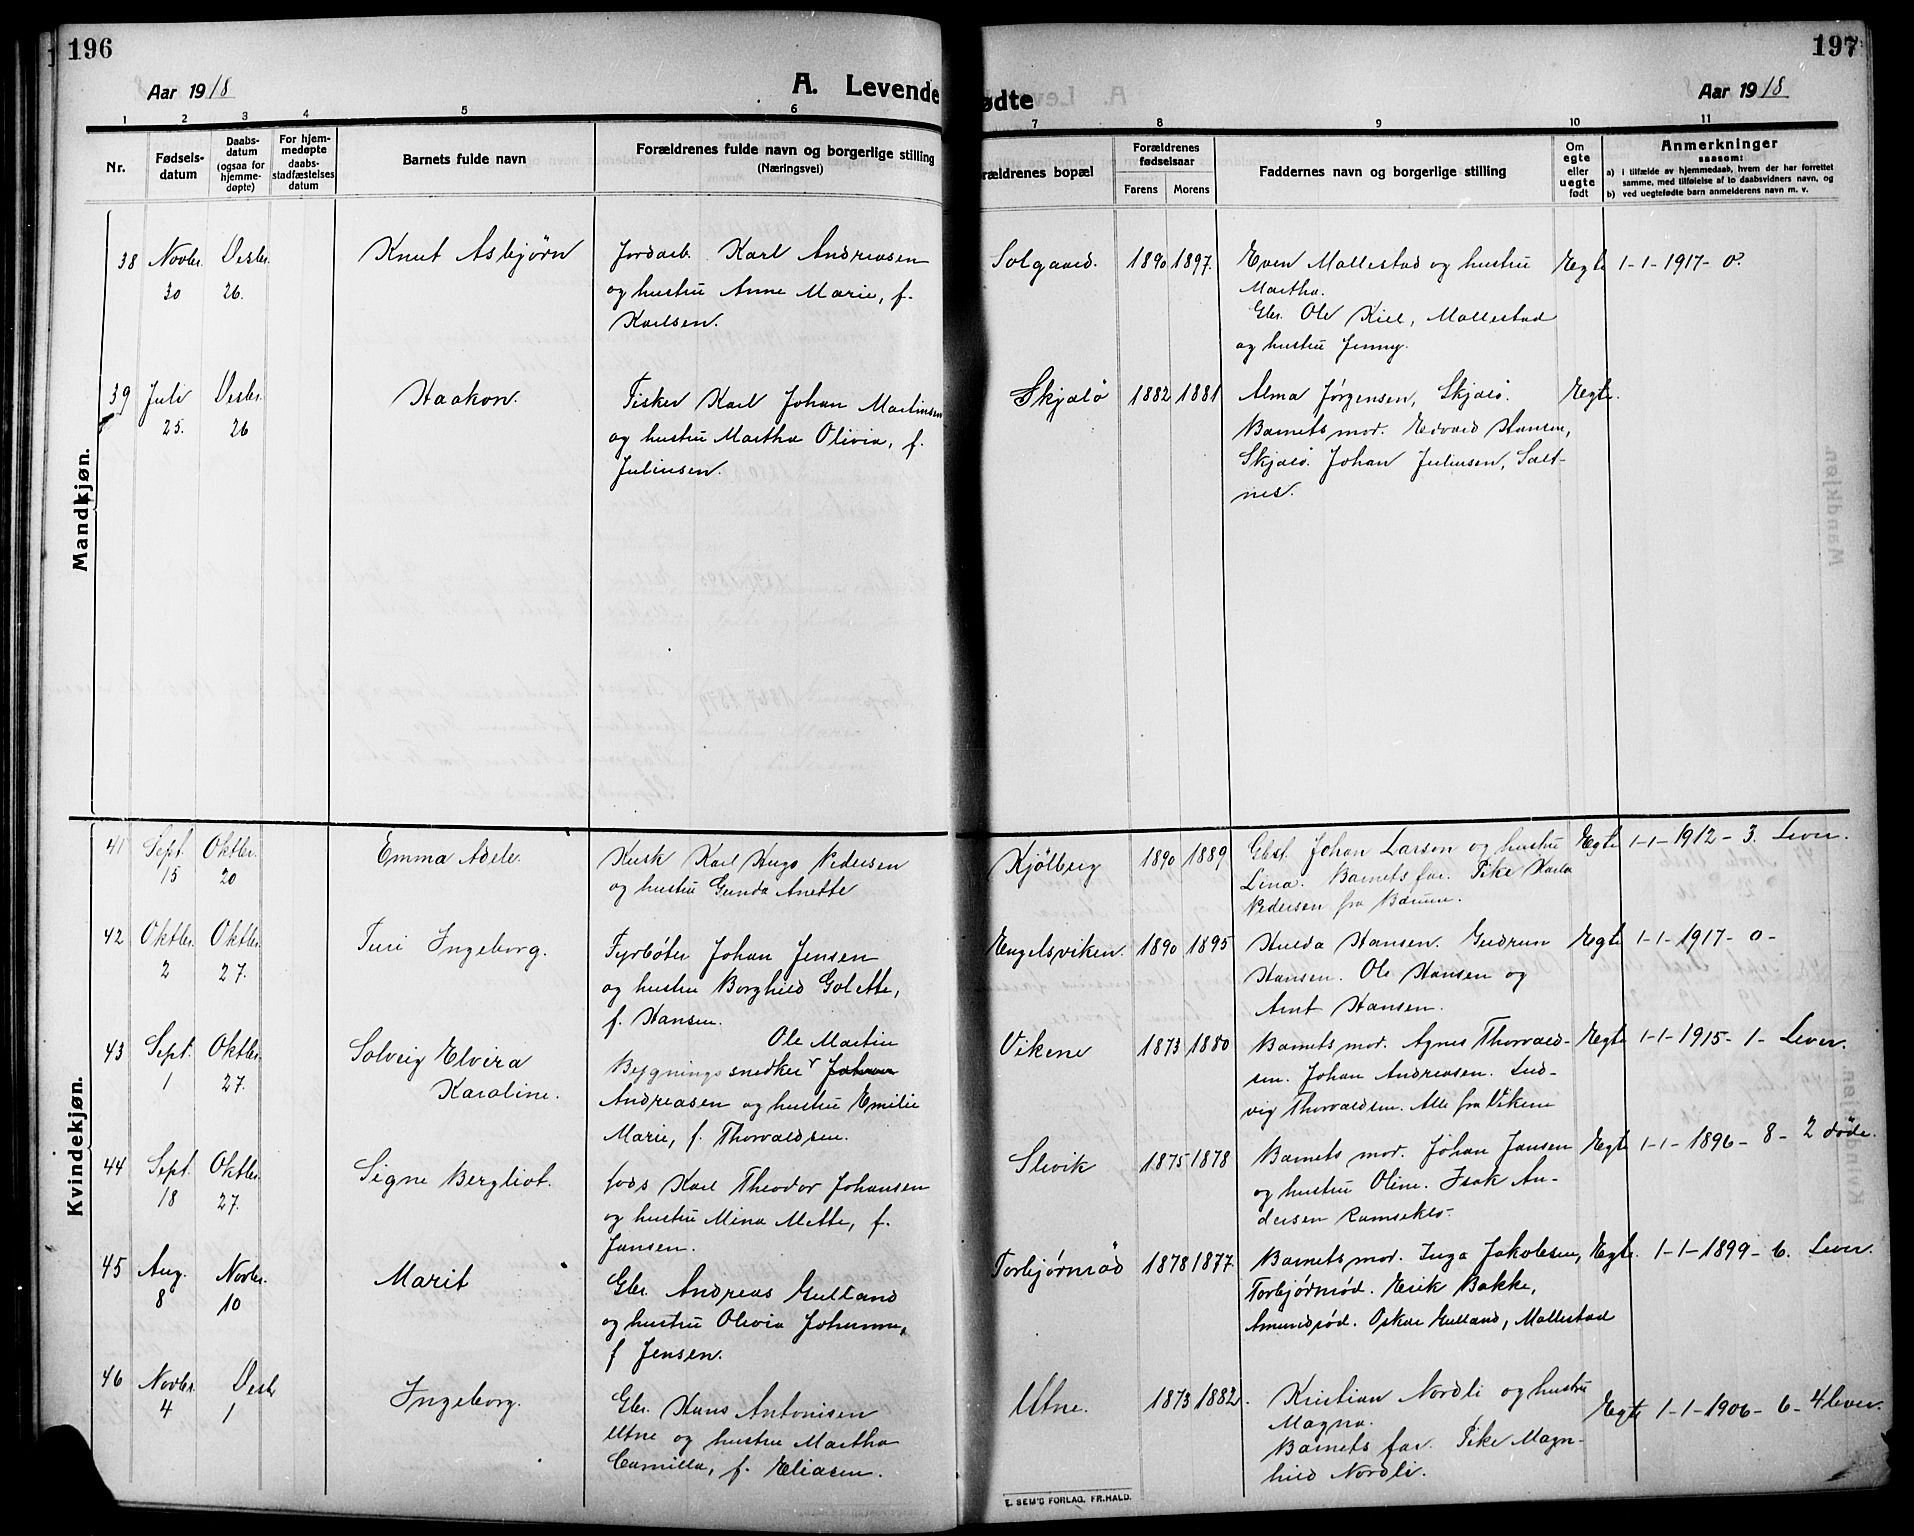 196
Aar 1918
A. Levende
1 2 3 4 5 6
Nr.
Fødsels-
datum
Daabs-
datum
(ogsaa for
hjemme-
døpte)
For hjem-
medøpte
daabs-
stadfæstelses
datum
Barnets fulde navn
Forældrenes fulde navn og borgerlige stilling
(Næringsvei)
Mandkjøn.
38 Novbr. Desbr. Knut Asbjørn Jordarb. Karl Andreasen
30 26. og hustru Anne Marie, f.
Karlsen.
39 Juli Desbr. Haakon. Fisker Karl Johan Martinsen
25. 26 og hustru Martha Olivia, f.
Juliussen.
Kvindekjøn.
41 Sept. Oktbr. Emma Adele. Husk Karl Hugo Pedersen
15 20 og hustru Gunda Anette
42 Oktbr. Oktbr. Turi Ingeborg. Fyrbøter Johan Jensen
2 27. og hustru Borghild Golette,
f. Hansen.
Ole Martin
43 Sept. Oktbr. Solveig Elvira Bygningssnedker Johan
1 27. Karoline. Andreasen og hustru Emilie
Marie, f. Thorvaldsen.
44 Sept. Oktbr. Signe Bergliot. Lods Karl Theodor Johansen
18 27. og hustru Mina Mette, f.
Jansen.
45 Aug. Novbr. Marit Gbr. Andreas Gulland
8 10 og hustru Olivia Johanne,
f Jensen.
46 Novbr. Desbr Ingeborg. Gbr. Hans Antonisen
4 1 Utne og hustru Martha
Camilla, f. Eliasen.
197
ødte
Aar 1918
7 8 9 10 11
rældrenes bopæl
Forældrenes
fødselsaar
Farens Morens
Faddernes navn og borgerlige stilling
Om
egte
eller
uegte
født
Anmerkninger
saasom:
a) i tilfælde av hjemmedaab, hvem der har forrettet
samme, med tilføielse af to daabsvidners navn, og
b) ved uegtefødte barn anmelderens navn m. v.
Solgaard. 1890 1897. Even Mallestad og hustru Egte 1-1-1917-0.
Martha.
Gbr. Ole Kiil, Mallestad
og hustru Jenny.
Skjælø 1882 1881 Alma Jørgensen, Skjælø. Egte.
Barnets mor. Edvard Hansen,
Skjælø. Johan Juliussen, Salt-
nes.
Kjølberg 1890 1889 Gbsf. Johan Larson og hustru Egte 1-1-1912-3. Lever.
Lina. Barnets far. Pike Karla
Pedersen fra Bærum.
Engelsviken. 1890 1895 Hulda Hansen. Gudrun Egte 1-1-1917-0-
Hansen. Ole Hansen og
Arnt Hansen.
Vikene 1873 1880 Barnets mor. Agnes Thorvald- Egte 1-1-1915-1- Lever.
sen. Johan Andreasen. Lud-
vig Thorvaldsen. Alle fra Vikene
Slevik 1875 1878 Barnets mor. Johan Jansen Egte 1-1-1896-8-2 døde.
og hustru Oline. Isak An-
dersen Ramseklo.
Torbjørnrød 1878 1877. Barnets mor. Inga Jakobsen, Egte. 1-1-1899-6. Lever.
Torbjørnrød. Erik Bakke,
Amundrød. Oskar Gulland, Mallestad
Utne. 1873 1882. Kristian Nordli og hustru Egte 1-1-1906-6-4 lever.
Magna.
Barnets far. Pike Magn-
hild Nordli.
E. SEM'S FORLAG, FR.HALD.